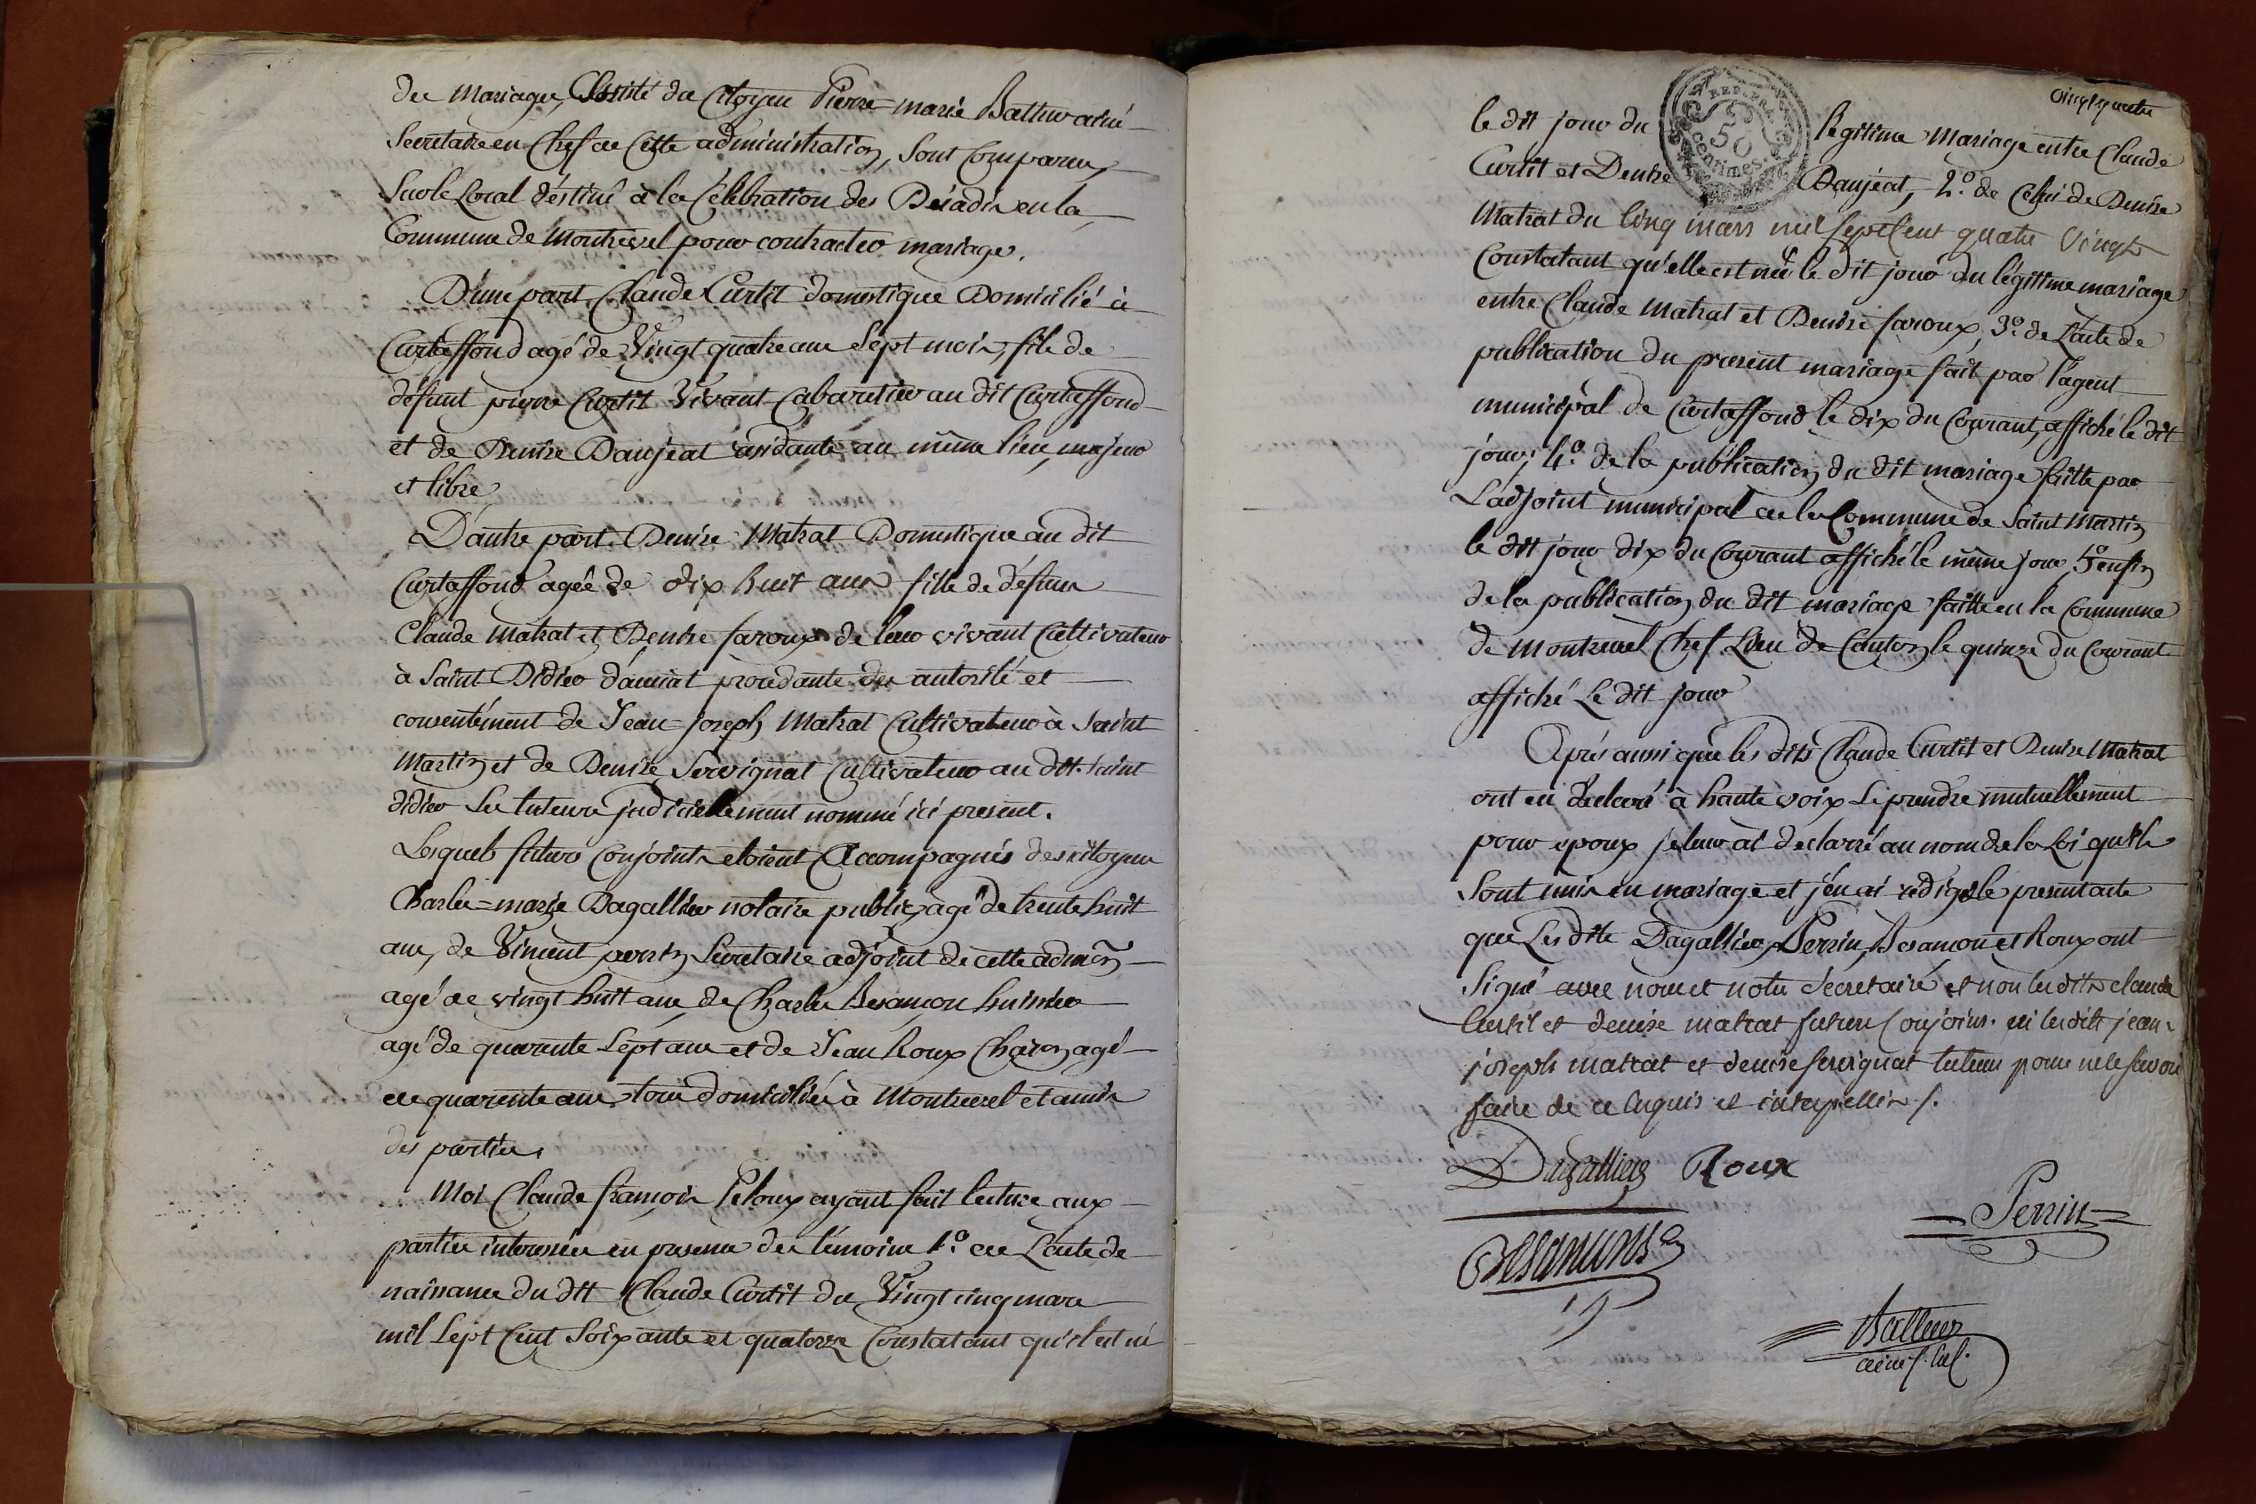 des Mariages, assisté du Citoyen Pierre-marie Balthur ainé
Secretaire en Chef de Cette administration, sont Comparus
Sur le Local déstiné à la Célébration des Décadis en la
Commune de Montrevel pour contracter mariage,
D'une part Claude Curtit domestique Domicilié à
Curtaffond agé de Vingt quatre ans Sept mois, fils de
défunt pierre Curtit Vivant Cabaretier au dit Curtaffond
et de Denise Daujeat residante au même lieu, majeur
et libre
D'autre part Denise Matrat Domestique au dit
Curtaffond agée de dix huit ans fille de défunts
Claude Matrat et Denise faroux de leur vivant Cultivateurs
à Saint Didier d'aussiat procédante des autorité et
consentement de Jean-Joseph Matrat Cultivateur à Saint
Martin et de Denise Servignat Cultivateur au dit Saint
didier Ses tuteurs judiciellement nommé ici present.
Lesquels futurs Conjoints etoient Accompagnés des citoyens
Charles=marie Dagallier notaire public, agé de trente huit
ans, de Vincent perrin Secretaire adjoint de cette admon
agé de vingt huit ans, de Charles Besançon huissier
agé de quarante Sept ans et de Jean Roux Charon agé
de quarente ans tous domiciliés à Montrevel et amis
des parties.
Moi Claude françois Peloux ayant fait lecture aux
parties interessées en presence des témoins 1.º de L'acte de
naissance du dit Claude Curtit du Vingt cinq mars
mil Sept Cent Soixante et quatorze Constatant qu'il est né
vingt quatre
le dit jour du légitime Mariage entre Claude
REP. FRA.
50
centimes
Curtit et Denise Daujeat, 2.º de Celui de Denise
Matrat du cinq mars mil sept Cent quatre Vingt
Constatant qu'elle est née le dit jour du légitime mariage
entre Claude Matrat et Denise faroux, 3.º de L'acte de
publication du present mariage fait par l'agent
municipal de Curtaffond le dix du Courant, affiché le dit
jour, 4.º de la publication du dit mariage faitte par
L'adjoint municipal de la Commune de Saint Martin
le dit jour dix du Courant affiché le même jour, 5º enfin
de la publication du dit mariage faitte en la Commune
de Montrevel Chef Lieu de Canton le quinze du Courant
affiché Le dit jour
Après aussi que les dits Claude Curtit et Denise Matrat
ont eu declaré à haute voix Se prendre mutuellement
pour epoux je leur ai declarré au nom de la Loi qu'ils
Sont unis en mariage et j'en ai redigé le present acte
que Les dits Dagallier, Perrin, Besançon et Roux ont
Signé avec nous et notre Secretaire et non les dits claude
Curtit et denise matrat futurs Conjoins. ni les dits jean-
joseph matrat et denise servignat tuteurs pour ne le savoir
faire de ce enquis et interpellés /.
Dagallier Roux
Perrin
Besançons
Balthur
ainé s. en c.